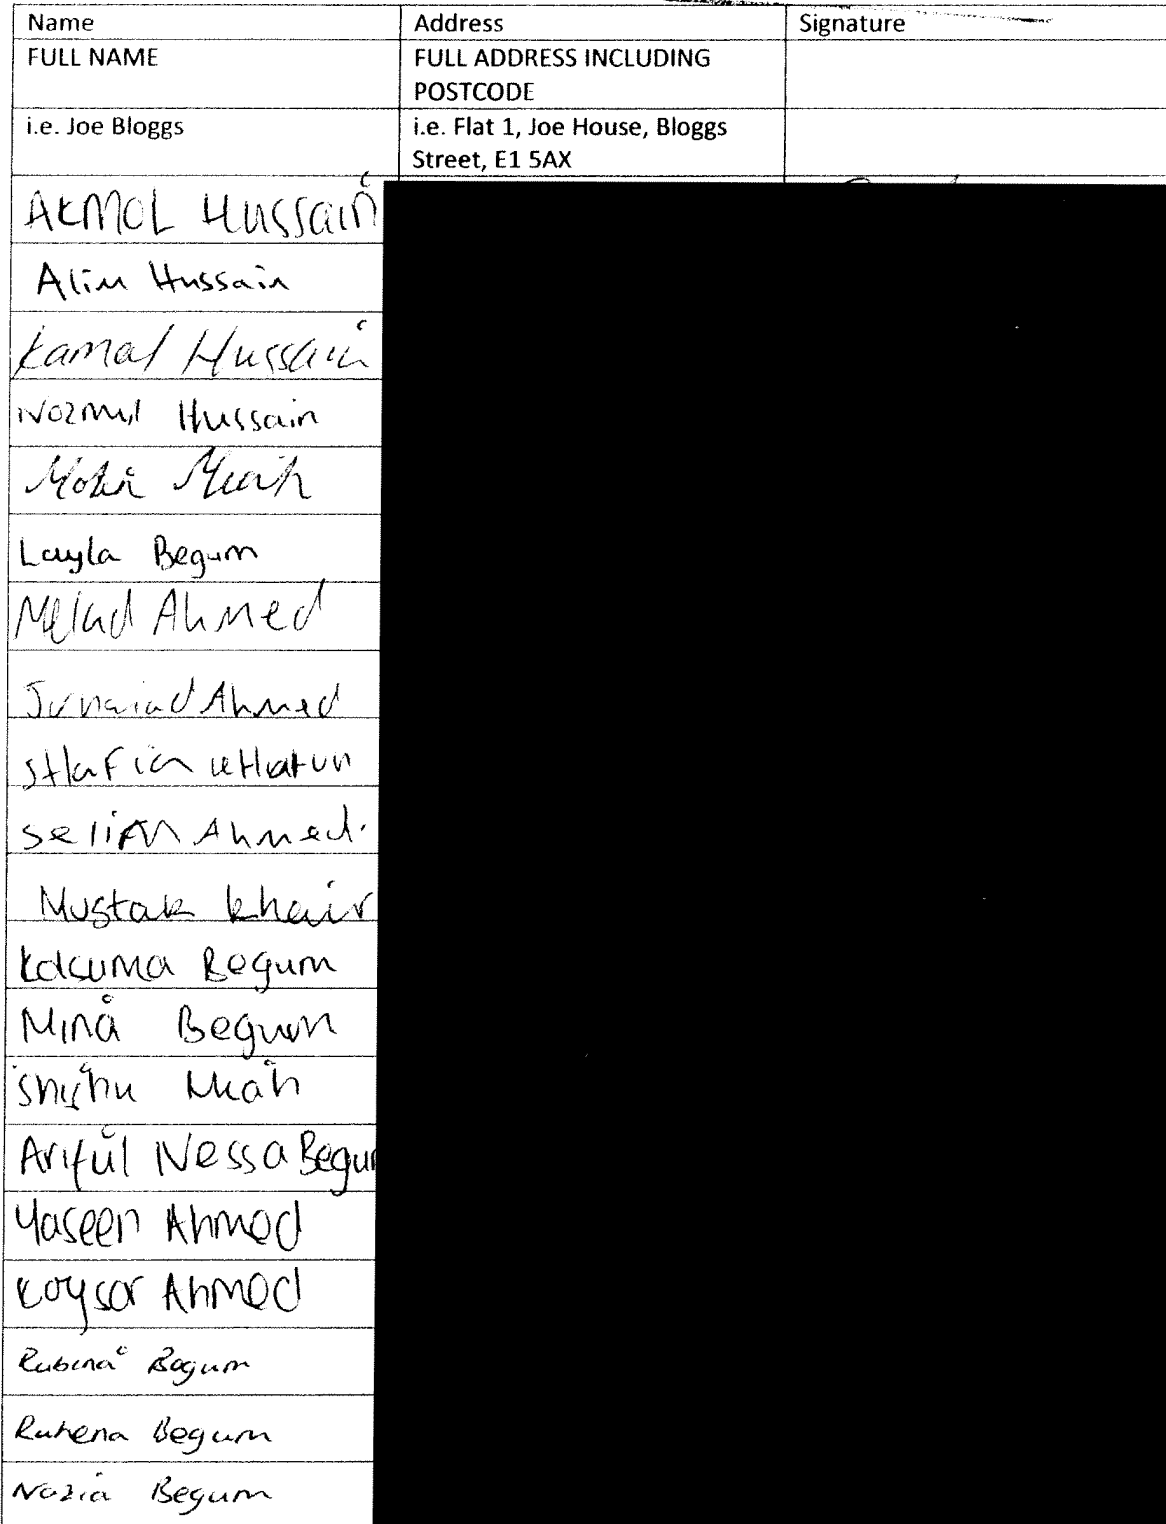 Name Address Signature
FULL NAME FULL ADDRESS INCLUDING
POSTCODE
i.e. Joe Bloggs i.e. Flat 1, Joe House, Bloggs
Street, E1 5AX
AKMOL HUSSaiN
Alim Hussain
Kamal Hussain
Nozmul Hussain
Miah
Layla Begum
Ahmed
Junaiad Ahmed
sHaFia kHatun
seliAM Ahmed.
Mustak Khair
Begum
Mina Begum
Shishu Miah
Ariful Nessa Begum
Yaseen Ahmed
Koysor Ahmed
Rubina Begum
Ruhena Begum
Nazia Begum